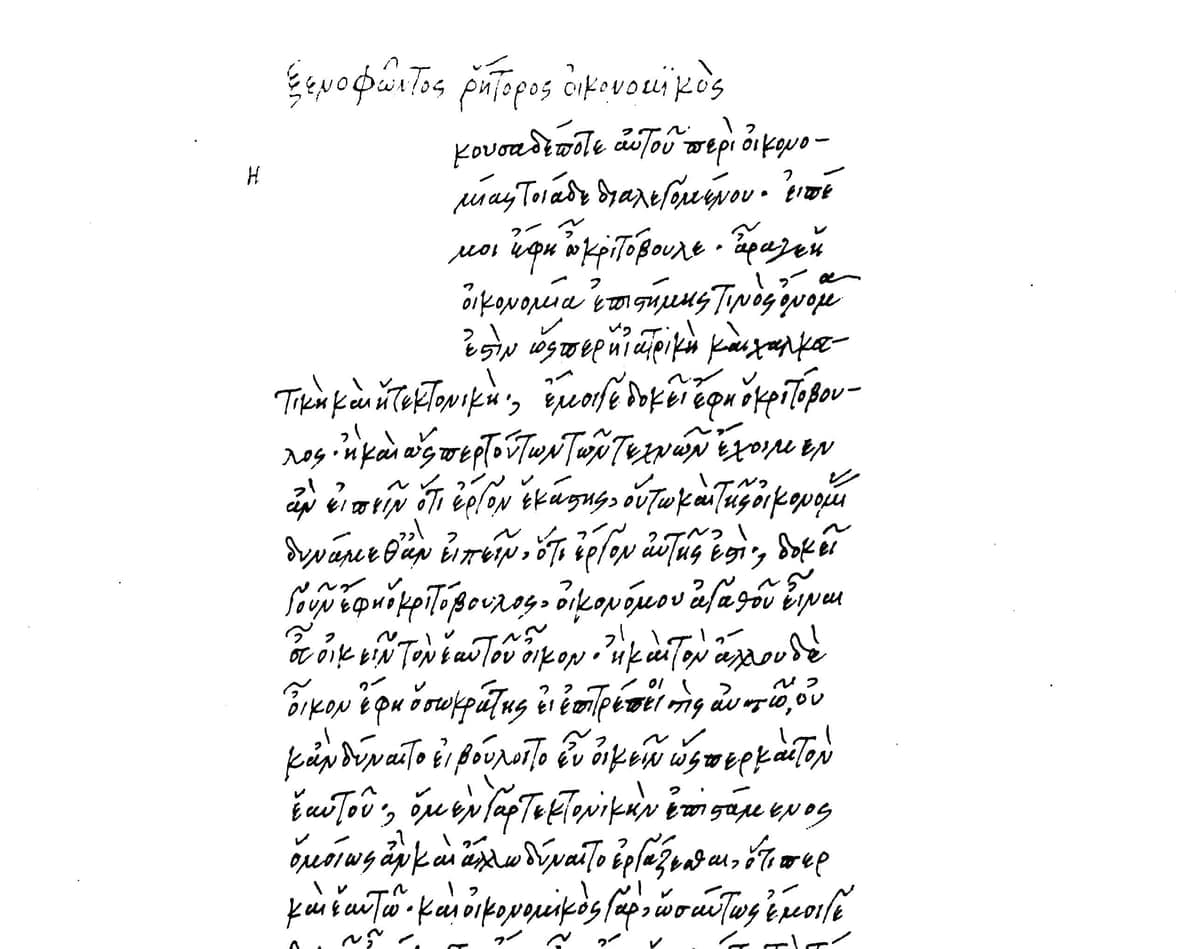 ξενοφῶντος ῥήτορος οἰκονομϊκὸς
κουσα δέ ποτε αὐτοῦ περὶ οἰκονο-
Η
μίας τοιάδε διαλεγομένου· εἰπέ
μοι ἔφη ὦ κριτόβουλε· ἆρά γε ἡ
οἰκονομία ἐπιστήμης τινὸς ὄνομα
ἐστὶν ὥσπερ ἡ ἰατρικὴ καὶ χαλκευ-
τικὴ καὶ ἡ τεκτονική·, ἔμοιγε δοκεῖ ἔφη ὁ κριτόβου-
λος· ἦ καὶ ὥσπερ τούτων τῶν τεχνῶν ἔχοιμεν
ἂν εἰπεῖν ὅτι ἔργον ἑκάστης, οὕτω καὶ τῆς οἰκονομί
δυνάμεθ ἂν εἰπεῖν, ὅτι ἔργον αὐτῆς ἐστὶ·, δοκεῖ
γοῦν ἔφη ὁ κριτόβουλος, οἰκονόμου ἀγαθοῦ εἶναι
εὖ οἰκεῖν τὸν ἑαυτοῦ οἶκον· ἦ καὶ τὸν ἄλλου δὲ
οἶκον ἔφη ὁ σωκράτης εἰ ἐπιτρέποι τὶς αὐτῶ, οὐ
κἂν δύναιτο εἰ βούλοιτο εὖ οἰκεῖν ὥσπερ καὶ τὸν
ἑαυτοῦ·, ὁ μὲν γὰρ τεκτονικὴν ἐπιστάμενος
ὁμοίως ἂν καὶ ἄλλω δύναιτο ἐργάζεσθαι, ὅτι περ
καὶ ἑαυτῶ· καὶ οἰκονομικὸς γὰρ, ὡσαύτως ἔμοιγε